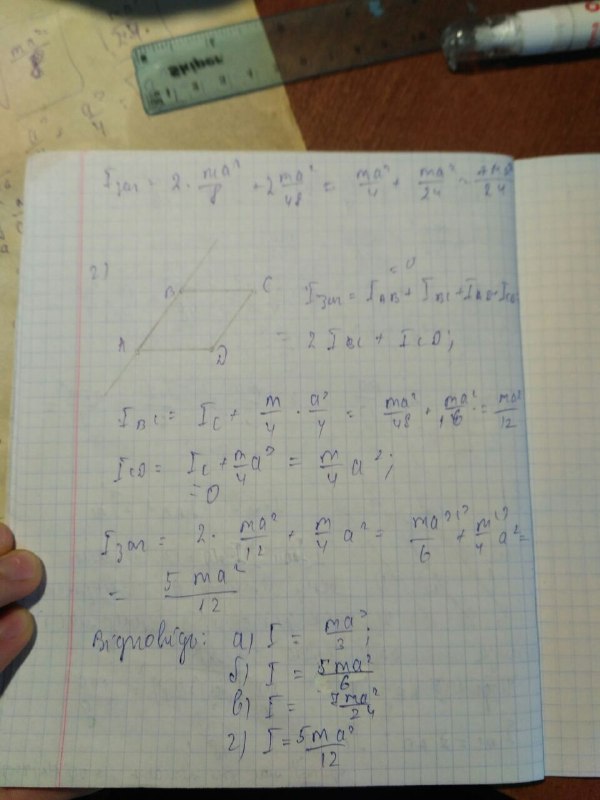 I заг = 2 · ma²/8 + 2 ma²/48 = ma²/4 + ma²/24 = 7ma²/24
г)
B C
A D
= 0
I заг = I AB + I BC + I AD + I CD
= 2 I BC + I CD;
I BC = I C + m/4 · a²/4 = ma²/48 + ma²/16 = ma²/12
I CD = I C + m/4 a² = m/4 a²;
= 0
I заг = 2 · ma²/12 + m/4 a² = ma²/6 + m/4 a² =
= 5 ma²/12
Відповідь: а) I = ma²/3;
б) I = 5ma²/6
в) I = 7ma²/24
г) I = 5ma²/12